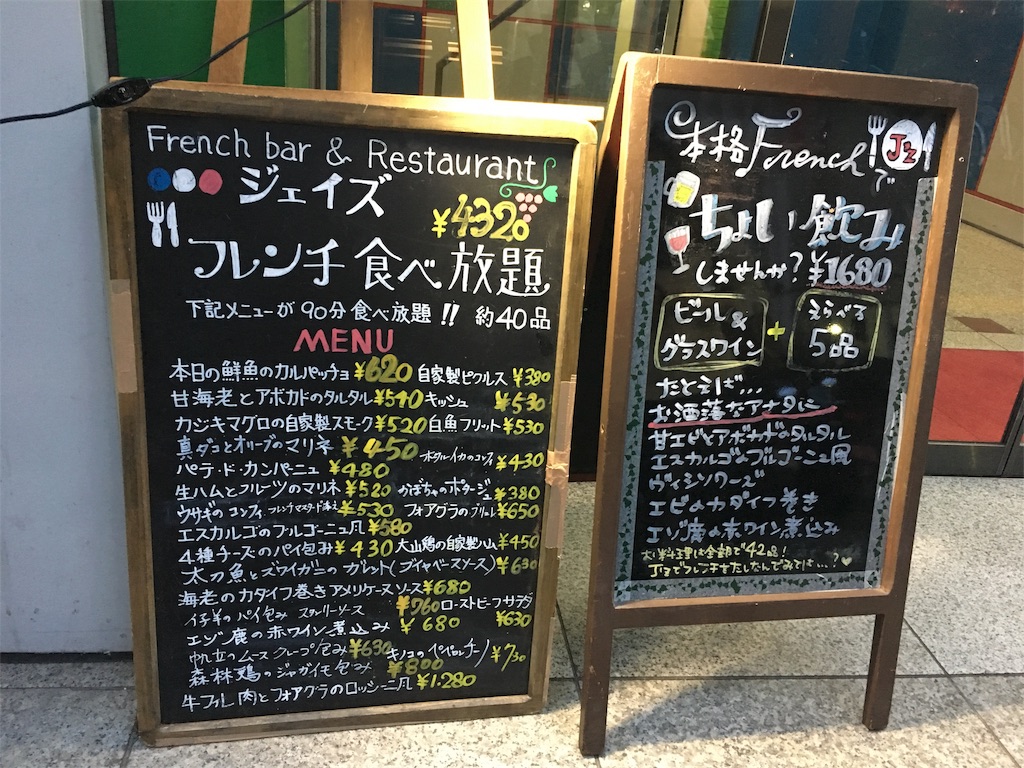 French bar & Restaurant
ジェイズ
¥4320
フレンチ 食べ放題
下記メニューが 90分 食べ放題!! 約40品
MENU
本日の鮮魚のカルパッチョ ¥620 自家製ピクルス ¥380
甘海老とアボカドのタルタル ¥540 キッシュ ¥530
カジキマグロの自家製スモーク ¥520 白魚フリット ¥530
真ダコとオリーブのマリネ ¥450 ホタルイカのコンフィ ¥430
パテ・ド・カンパーニュ ¥480
生ハムとフルーツのマリネ ¥520 かぼちゃのポタージュ ¥380
ウサギのコンフィ フレンチマスタード添え ¥530 フォアグラのブリュレ ¥650
エスカルゴのブルゴーニュ風 ¥580
4種チーズのパイ包み ¥430 大山鶏の自家製ハム ¥450
太刀魚とズワイガニのガレット(ブイヤベースソース) ¥630
海老のカダイフ巻きアメリケーヌソース ¥680
仔羊のパイ包み ¥760 ローストビーフサラダ ¥630
エゾ鹿の赤ワイン煮込み ¥680
帆立のムース クレープ包み ¥630 キノコのペペロンチーノ ¥730
森林鶏のジャガイモ包み ¥800
牛フィレ肉とフォアグラのロッシーニ風 ¥1.280
本格Frenchで J'z
ちょい飲み
しませんか? ¥1680
ビール & グラスワイン + えらべる 5品
たとえば...
お洒落なアナタに
甘エビとアボカドのタルタル
エスカルゴのブルゴーニュ風
ヴィシソワーズ
エビのカダイフ巻き
エゾ鹿の赤ワイン煮込み
お料理は全部で42品!
J'zでフレンチをたしなんでみては...?♥